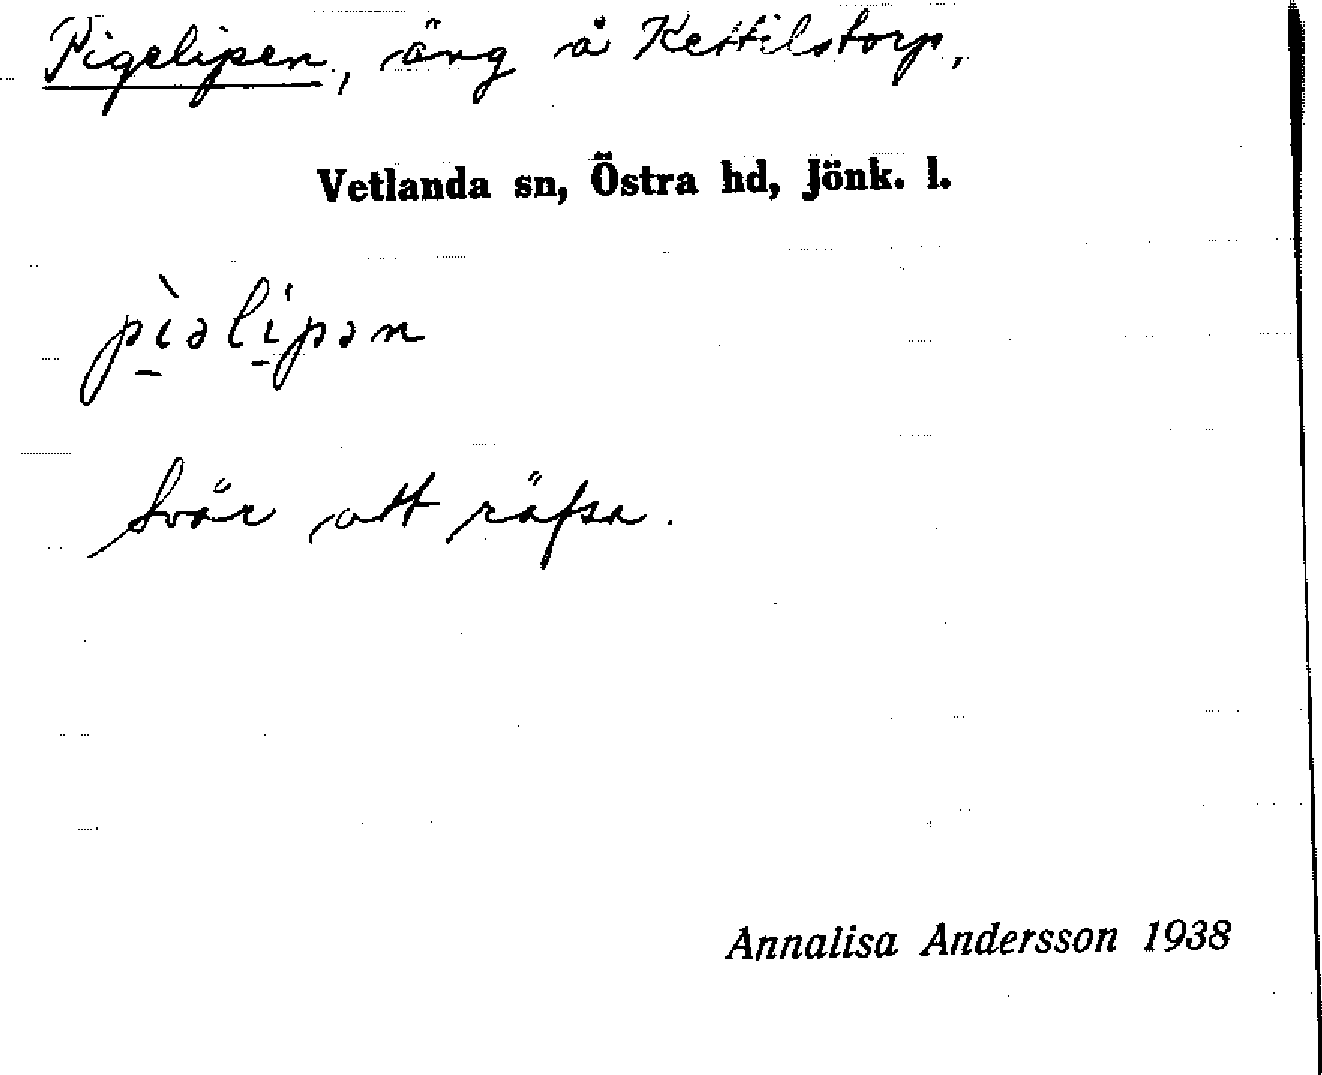 Pigelipen, äng å Kettilstorp.
Vetlanda sn, Östra hd, Jönk. l.
pìəlípən
Svår att räfsa.
Annalisa Andersson 1938